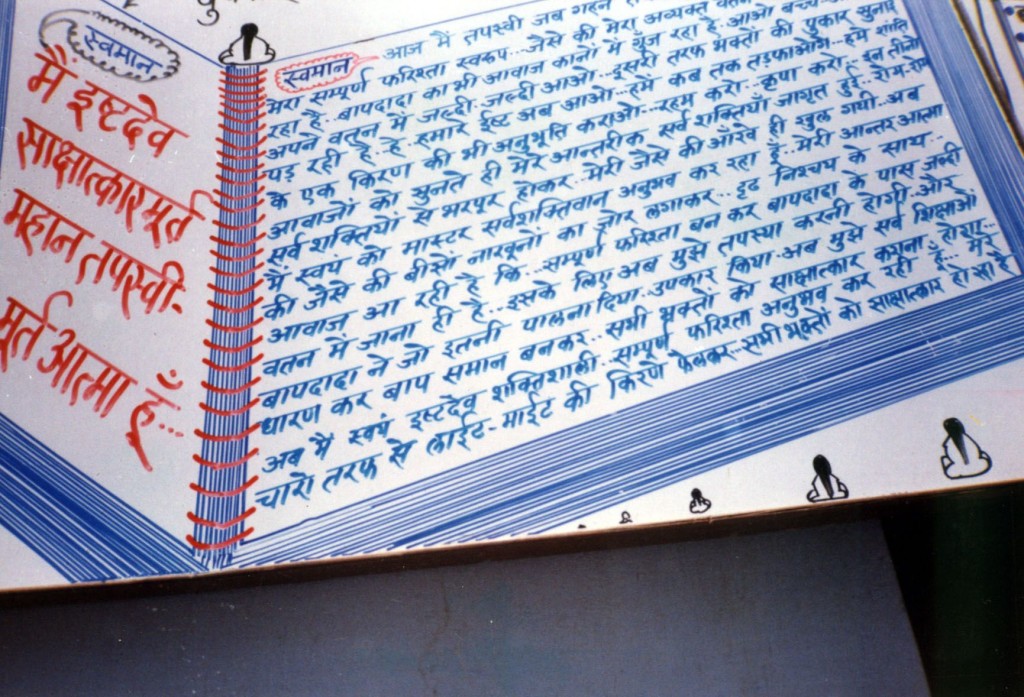 स्वमान
मैं इष्टदेव
साक्षात्कारमूर्त
महान तपस्वी-
मूर्त आत्मा हूँ...
स्वमान
आज मैं तपस्वी जब गहन
मेरा सम्पूर्ण फरिश्ता स्वरूप... जैसे की मेरा अव्यक्त वतन
रहा है.. बापदादा का भी आवाज कानों में गूँज रहा है. आओ बच्चे
अपने वतन में जल्दी जल्दी आओ... दूसरी तरफ भक्तों की पुकार सुनाई
पड़ रही है.. हे.. हमारे ईष्ट अब आओ... हमें कब तक तड़फाओगे.. हमें शांति
के एक किरण की भी अनुभूति कराओ.. रहम करो.. कृपा करो.. इन तीनों
आवाजों को सुनते ही मेरे आन्तरीक सर्व शक्तियाँ जागृत हुई. रोम-रोम
सर्व शक्तियों से भरपूर होकर.. मेरी जैसे की आँखे ही खुल गयी.. अब
मैं स्वयं को मास्टर सर्वशक्तिवान अनुभव कर रहा हूँ.. मेरी आन्तर आत्मा
की जैसे की बीसों नाखूनों का जोर लगाकर.. दृढ निश्चय के साथ..
आवाज़ आ रही है कि... सम्पूर्ण फरिश्ता बन कर बापदादा के पास जल्दी
वतन में जाना ही है... इसके लिए अब मुझे तपस्या करनी होगी और
बापदादा ने जो इतनी पालना दिया.. उपकार किया.. अब मुझे सर्व शिक्षाओं
धारण कर बाप समान बनकर.. सभी भक्तों को साक्षात्कार कराना होगा...
अब मैं स्वयं इष्टदेव शक्तिशाली. सम्पूर्ण फरिश्ता अनुभव कर रही हूँ... मेरे
चारों तरफ से लाईट-माईट की किरणें फैलकर... सभी भक्तों को साक्षात्कार हो रहा है